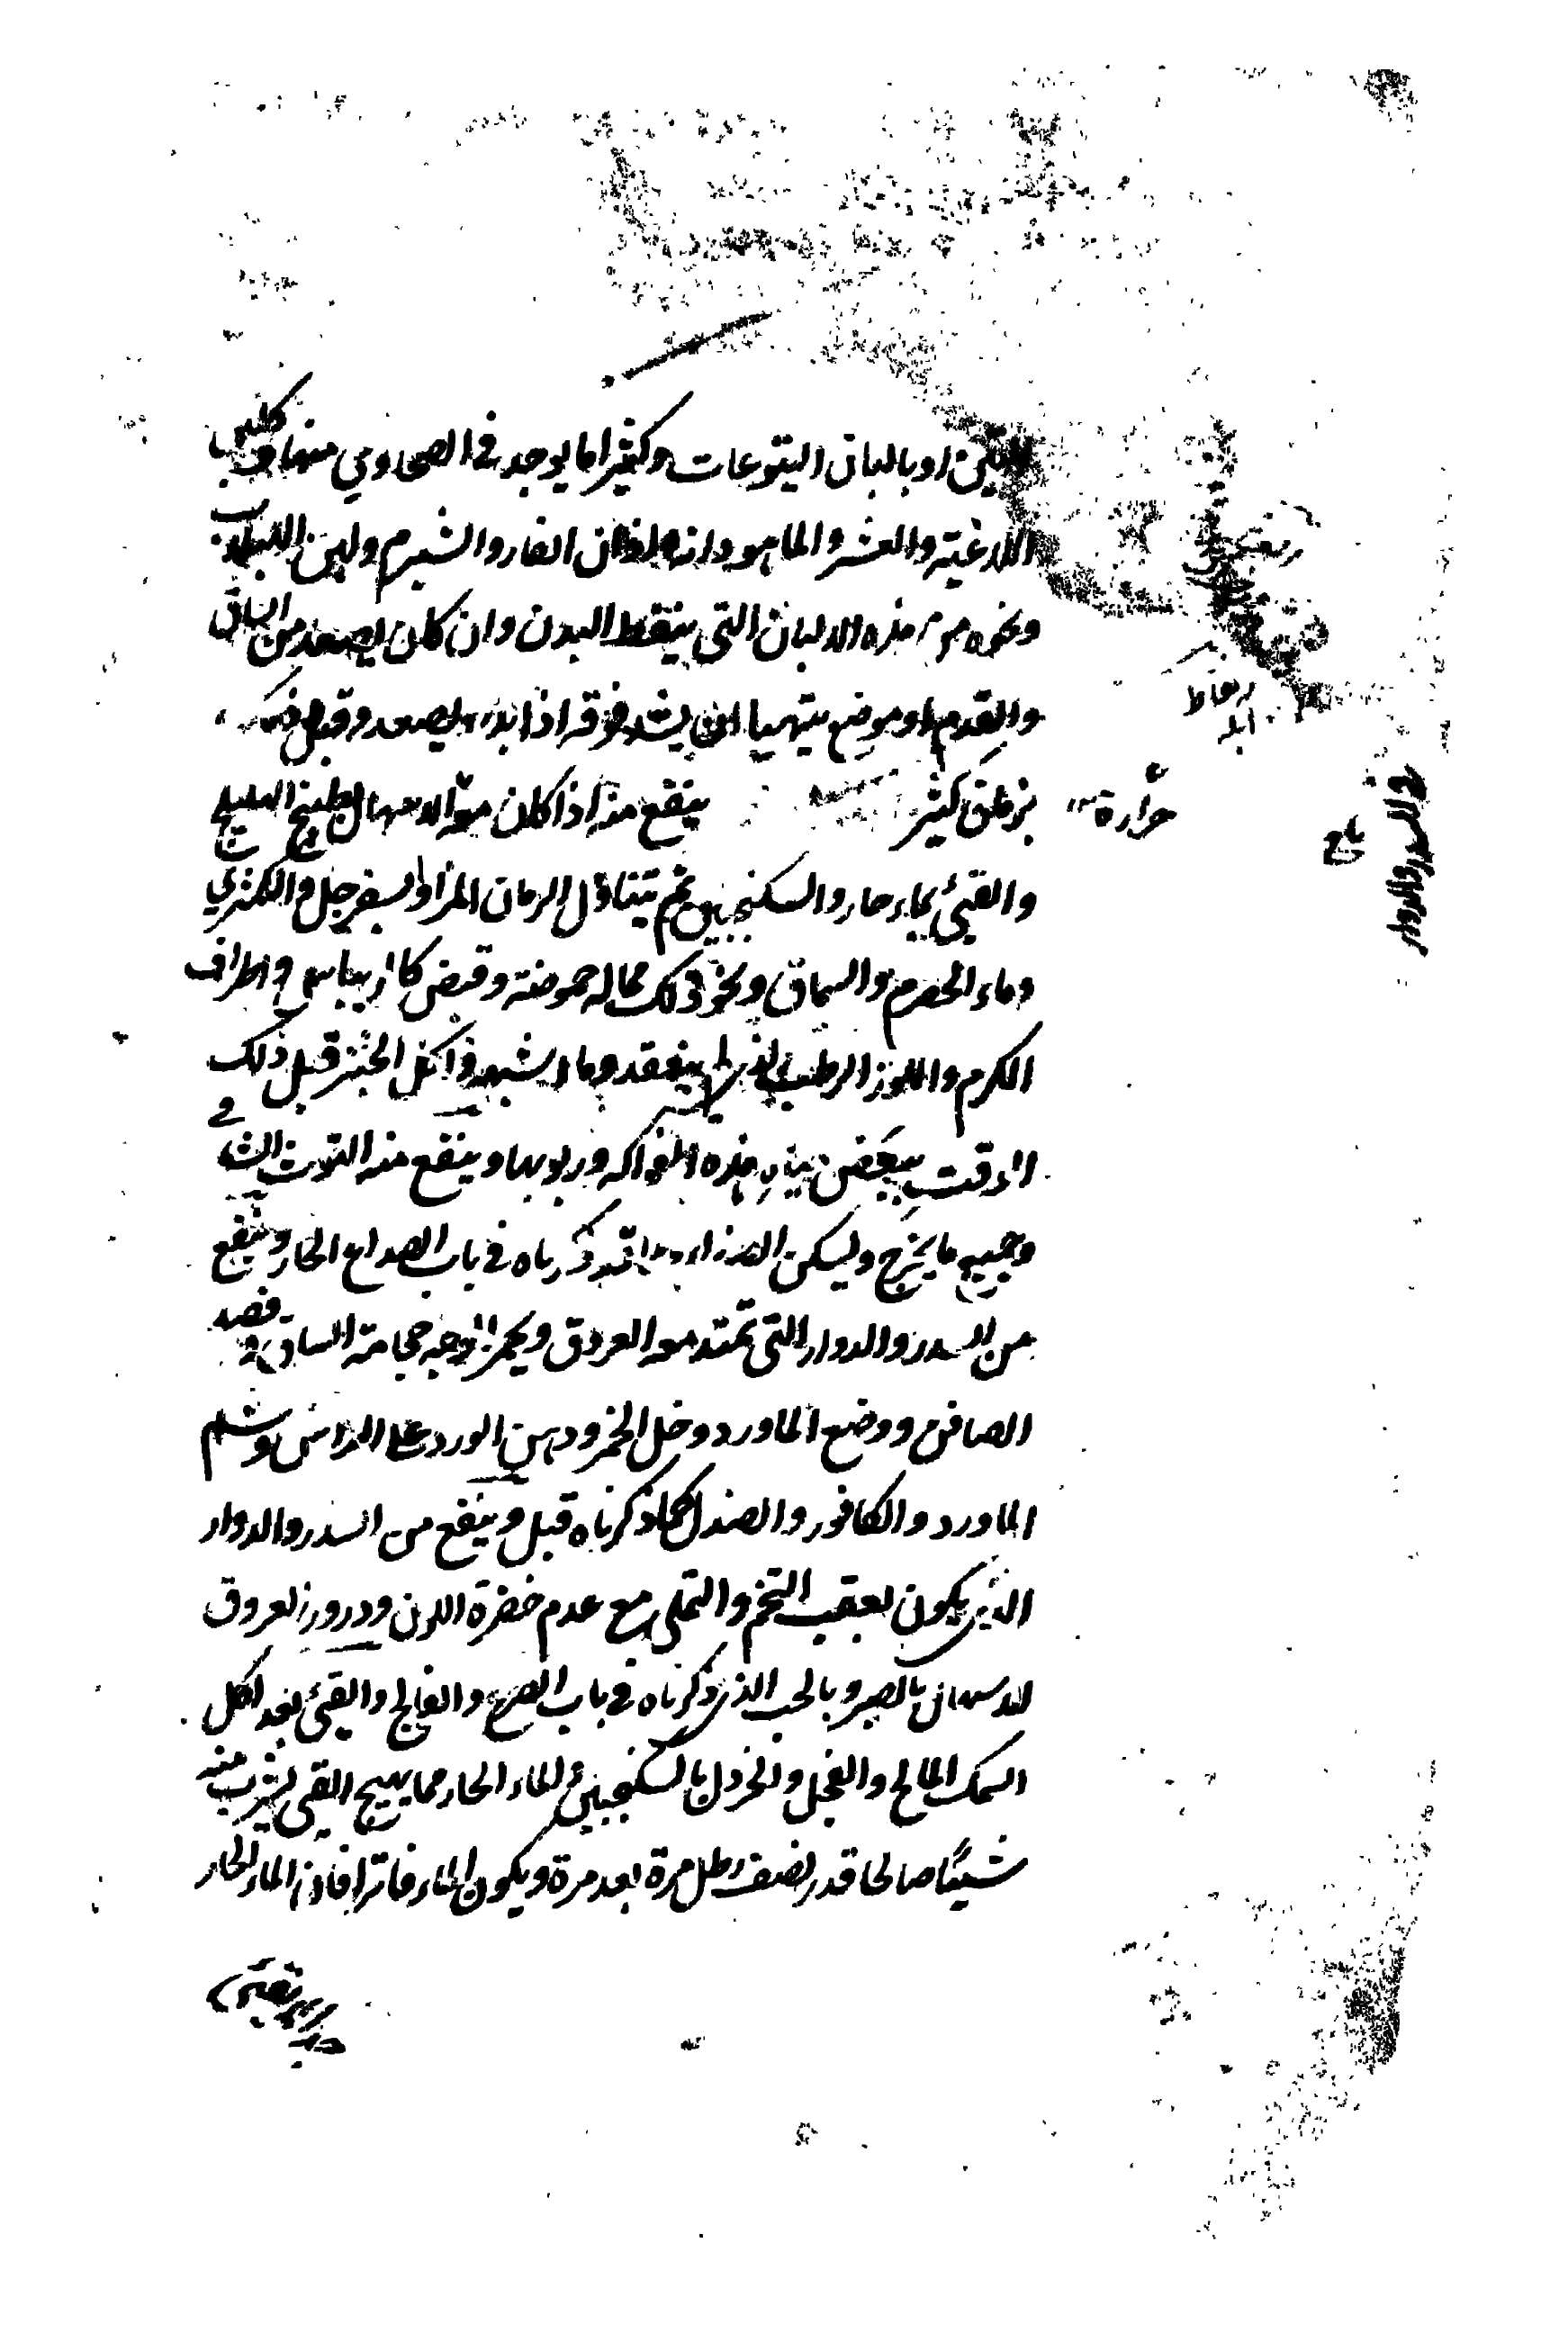 التين او بالبان اليتوعات وكثيرا ما يوجد في الصحاري منها
اللاغية والعشر والماهودانه واذان الفار والشبرم ولبن اللبلاب
ونحوه من هذه الالبان التي ينقط البدن وان كان يصعد من الساق
والقدم او موضع يتهيا ان يشد فوقه اذا بدا يصعد وقبل
بزعق كثير ينفع منه اذا كان معه الاسهال بطبيخ الهليلج
حرارة
والقيئ بماء حار والسكنجبين ثم يتناول الرمان المز او السفرجل والكمثري
وماء الحصرم والسماق ونحو ذلك مما له حموضة وقبض كالريباس واطراف
الكرم واللوز الرطب الذي لم ينعقد وما اشبهه واكل الخبز قبل ذلك
الوقت ببعض مياه هذه الفواكه وربوبها وينفع منه التوت الشا
وجميع ما يخرج ويسكن الصفراء مما قد ذكرناه في باب الصداع الحار وينفع
من السدر والدوار التي تمتد معه العروق ويحمر الوجه حجامة الساق و فصد
الصافن ووضع الماورد وخل الخمر ودهن الورد على الراس وشم
الماورد والكافور والصندل كما ذكرناه قبل وينفع من السدر والدوار
الذي يكون بعقب التخم والتملي مع عدم خضرة اللون ودرور العروق
الاسهال بالصبر وبالحب الذي ذكرناه في باب الصرع والفالج والقيئ بعد اكل
السمك المالح والفجل والخردل بالسكنجبين والماء الحار مما يهيج القيئ يشرب منه
شيئا صالحا قدر نصف رطل مرة بعد مرة ويكون الماء فاترا فان الماء الحار